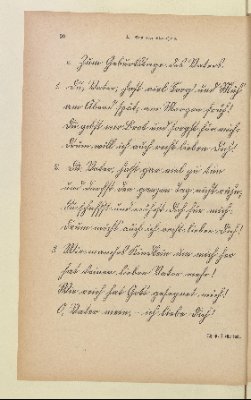 c. Zum Geburtstage des Vaters.
1. Du, Vater, hast viel Sorg' und Müh'
am Abend spät, am Morgen früh!
Du gibst mir Brot und sorgst für mich.
Drum will ich auch recht lieben dich!
2. Du, Vater, hast gar viel zu tun
und darfst den ganzen Tag nicht ruhn,
Du schaffst und mühst dich für mich.
Drum auch ich recht lieben dich!
3. Wie manches Kindlein wie mich her
hat keinen lieben Vater mehr!
Wie reich hat Gott gesegnet mich!
O, Vater mein, — ich liebe dich!